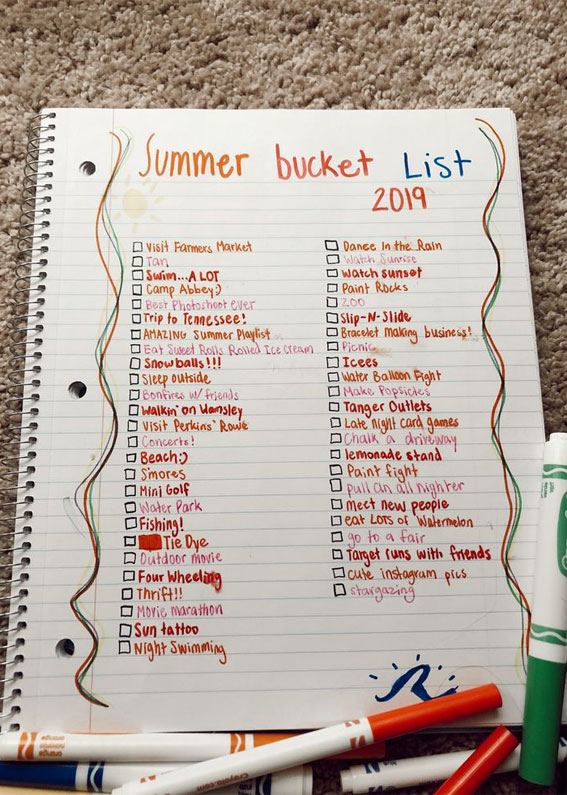 Summer bucket List
2019
Visit Farmers Market
Tan
Swim...A LOT
Camp Abbey:)
Best Photoshoot Ever
Trip to Tennessee!
AMAZING Summer Playlist
Eat Sweet Rolls Rolled Ice Cream
Snowballs!!!
Sleep outside
Bonfires w/ friends
Walkin' on Wamsley
Visit Perkins' Rowe
Concerts!
Beach:)
S'mores
Mini Golf
Water Park
Fishing!
Tie Dye
Outdoor movie
Four Wheeling
Thrift!!
Movie marathon
Sun tattoo
Night Swimming
Dance In the Rain
Watch Sunrise
Watch sunset
Paint Rocks
ZOO
Slip-N-Slide
Bracelet making business!
Picnic
Icees
Water Balloon Fight
Make Popsicles
Tanger Outlets
Late night card games
Chalk a driveway
lemonade stand
Paint fight
pull an all nighter
meet new people
eat LOTS of Watermelon
go to a fair
Target runs with friends
cute instagram pics
stargazing
Crayola.com